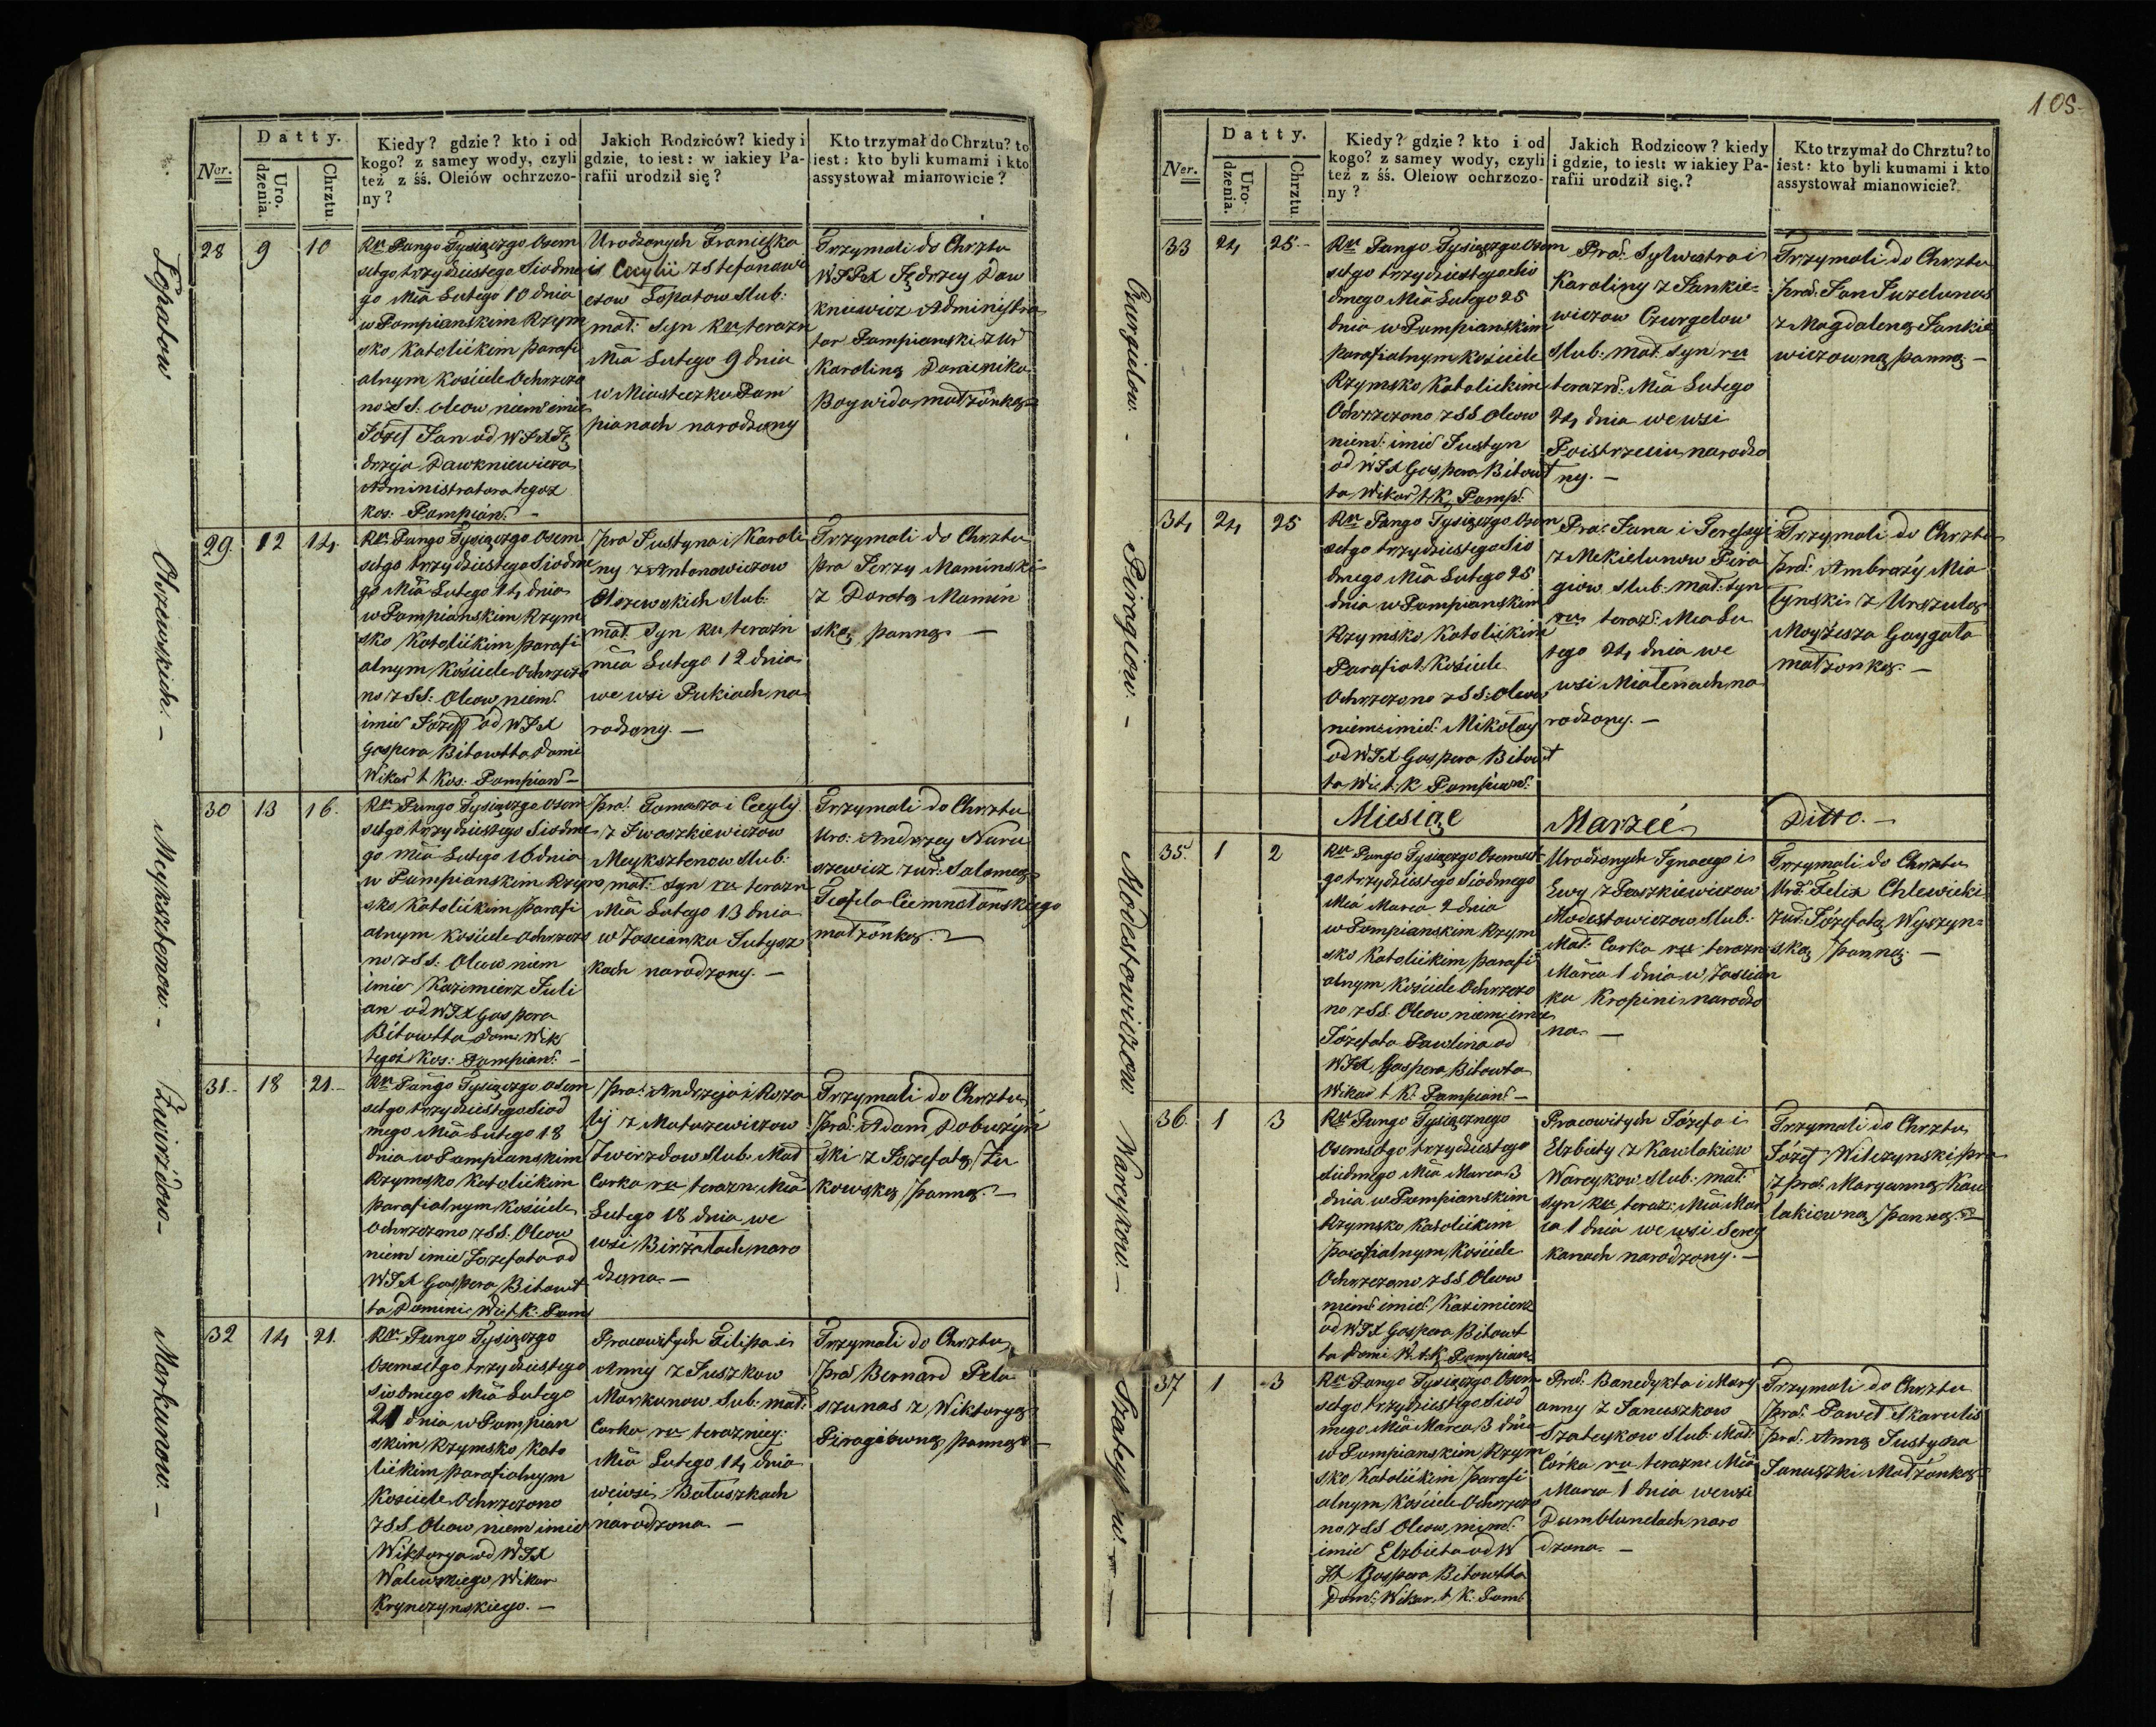 105
Ner.
Datty.
Uro. dzenia.
Chrztu.
Kiedy? gdzie? kto i od
kogo? z samey wody, czyli
też z śś. Oleiów ochrzczo-
ny?
Jakich Rodziców? kiedy i
gdzie, to iest: w iakiey Pa-
rafii urodził się?
Kto trzymał do Chrztu? to
iest: kto byli kumami i kto
assystował mianowicie?
Łopatow
28 9 10
Ru Pango Tysiączgo Osem
setgo trzydziestego Siodme
go Mca Lutego 10 dnia
w Pompianskim Rzym
sko Katolickim parafi
alnym Kościele Ochrzczo
no z SS. Oleow niem imie
Józef Jan od WJX Ję
drzeja Dawkniewicza
Administratora tegoż
Kos: Pompian: -
Urodzonych Franciszka
i Cecylii z Stefanowi
czow Łopatow Slub:
mał: Syn Ru terazn
Mca Lutego 9 dnia
w Miasteczku Pom
pianach narodzony
Trzymali do Chrztu
WJPX Jędrzey Daw
kniewicz Administra
tor Pompianski z Ur
Karoliną Dominika
Boywida małżonką
Olszewskich. -
29. 12 14.
Ru Pango Tysiączgo Osem
setgo trzydziestego Siodme
go Mca Lutego 14 dnia
w Pompianskim Rzym
sko Katolickim parafi
alnym Kościele Ochrzczo
no z SS: Oleow niem:
imie Józef od WJX
Gaspera Bitowtta Domi
Wikar t. Kos: Pompian -
Pra Justyna i Karoli
ny z Antonowiczow
Olszewskich Slub:
mał: Syn Ru terazn
mca Lutego 12 dnia
we wsi Pukiach na
rodzony. -
Trzymali do Chrztu
pra Jerzy Maminski
z Dorotą Mamin
ską panną -
Meyksztenow. -
30 13 16.
Ru Pango Tysiączgo Osem
setgo trzydziestego Siodme
go Mca Lutego 16 dnia
w Pompianskim Rzym
sko Katolickim parafi
alnym Kościele Ochrzczo
no z SS. Oleow niem
imie Kazimierz Juli
an od WJX Gaspera
Bitowtta Dom: Wik
tegoż Kos: Pompian: -
Pra: Tomasza i Cecylij
z Iwaszkiewiczow
Meyksztenow Slub:
mał: Syn ru terazn
Mca Lutego 13 dnia
w Zaścianku Jutysz
kach narodzony. -
Trzymali do Chrztu
Uro: Andrzey Naru
szewicz z ur: Salomeą
Teofila Ciemnołanskiego
małżonką. -
Zwirżdow -
31. 18 21.
Ru Pango Tysiączgo Osem
setgo trzydziestego Siod
mego Mca Lutego 18
dnia w Pompianskim
Rzymsko Katolickim
parafialnym Kościele
Ochrzczono z SS. Oleow
niem imie Jozefata od
WJX Gaspera Bitowt
ta Domini: Wi t. k: Pom
Pra: Andrzeja i Roza
lij z Matuzewiczow
Zwirzdow Slub: Mał
Corka ru terazn: Mca
Lutego 18 dnia we
wsi Birżałach naro
dzona. -
Trzymali do Chrztu
Pra: Adam Dobużyn
ski z Jozefatą Żu
kowską panną. -
Markunow. -
32 14 21.
Ru: Pango Tysiączgo
Osemsetgo trzydziestego
Siodmego Mca Lutego
21 dnia w Pompian
skim Rzymsko Kato
lickim parafialnym
Kościele Ochrzczono
z SS Oleow niem imie
Wiktorya od WJX
Walewskiego Wikar
Krynczynskiego. -
Pracowitych Filipa i
Anny z Juszkow
Markunow Sub: mał:
Corka ru terazniey:
Mca Lutego 14 dnia
we wsi Bałuszkach
narodzona. -
Trzymali do Chrztu
Pra Bernard Pela
szunas z Wiktoryą
Piragiowną panną -
Ner.
Datty.
Uro- dzenia.
Chrztu.
Kiedy? gdzie? kto i od
kogo? z samey wody, czyli
też z śś. Oleiow ochrzczo-
ny?
Jakich Rodzicow? kiedy
i gdzie, to iest: w iakiey Pa-
rafii urodził się.?
Kto trzymał do Chrztu? to
iest: kto byli kumami i kto
assystował mianowicie?
Czurgielow. -
33 24 25.
Ru Pango Tysiączgo Osem
setgo trzydziestego Sio
dmego Mca Lutego 25
dnia w Pompianskim
Parafialnym Kościele
Rzymsko Katolickim
Ochrzczono z SS Oleow
niem: imie Justyn
od WJX Gaspera Bitowt
ta Wikar t. K. Pomp:
Pra: Sylwestra i
Karoliny z Jankie-
wiczow Czurgelow
Slub: mał: Syn ru
terazn: Mca Lutego
24 dnia we wsi
Poistrzeciu narodzo
ny. -
Trzymali do Chrztu
Pra: Jan Juzelunas
z Magdaleną Jankie
wiczowną panną -
Piragiow. -
34 24 25
Ru Pango Tysiączgo Osem
setgo trzydziestego Sio
dmego Mca Lutego 25
dnia w Pompianskim
Rzymsko Katolickim
Parafial: Kościele
Ochrzczono z SS: Oleow
niem: imie: Mikołay
od WJX Gaspera Bitowt
ta Wi t. K Pompian:
Pra: Jana i Teressyi
z Mekielunow Pira
giow Slub: mał: Syn
ru teraz: Mca Lu
tego 24 dnia we
wsi Miałenach na
rodzony. -
Trzymali do Chrztu
Pra: Ambroży Mia
tynski z Urszulą
Moyżesza Gaygała
małżonką. -
Miesiąc Marzec Ditto. -
Modestowiczow
35. 1 2
Ru Pango Tysiączgo Osemset
go trzydziestego Siodmego
Mca Marca 2 dnia
w Pompianskim Rzym
sko Katolickim parafi
alnym Kościele Ochrzczo
no z SS. Oleow niem imie
Józefata Pawlina od
WJX Gaspera Bitowta
Wikar t K. Pompian: -
Urodzonych Ignacego i
Ewy z Paszkiewiczow
Modestowiczow Slub:
Mał: Corka ru terazn
Marca 1 dnia w Zaścian
ku Kropini narodzo
na. -
Trzymali do Chrztu
Ur: Felix Chlewicki
z ur: Józefatą Wyszyn=
ską panną. -
Warcykow. -
36. 1 3
Ru Pango Tysiącznego
Osemsetgo trzydziestego
siudmego Mca Marca 3
dnia w Pompianskim
Rzymsko Katolickim
parafialnym Kościele
Ochrzczono z SS Oleow
niem: imie: Kazimierz
od WJX Gaspera Bitowt
ta Domi W. t. K. Pompian:
Pracowitych Józefa i
Elzbiety z Kawlakiow
Warcykow Slub: mał:
Syn Ru teraz: Mca Mar
ca 1 dnia we wsi Sereg
kanach narodzony. -
Trzymali do Chrztu
Józef Wilczynski pra
z pra: Maryanną Kau
lakiowną panną. -
Szateykow. -
37 1 3
Ru Pango Tysiączgo Osem
setgo trzydziestego Siod
mego Mca Marca 3 dnia
w Pompianskim Rzym
sko Katolickim parafi
alnym Kościele Ochrzczo
no z SS Oleow niem:
imie Elzbieta od W
JX Gaspera Bitowtta
Dom: Wikar. t. K: Pom:
Pra: Banedykta i Mary
anny z Januszkow
Szateykow Slub: Mał:
Córka ru terazn: Mca
Marca 1 dnia we wsi
Dumblunelach naro
dzona. -
Trzymali do Chrztu
Pra: Paweł Skarulis
pra: Anną Justyna
Januszki Małżonką